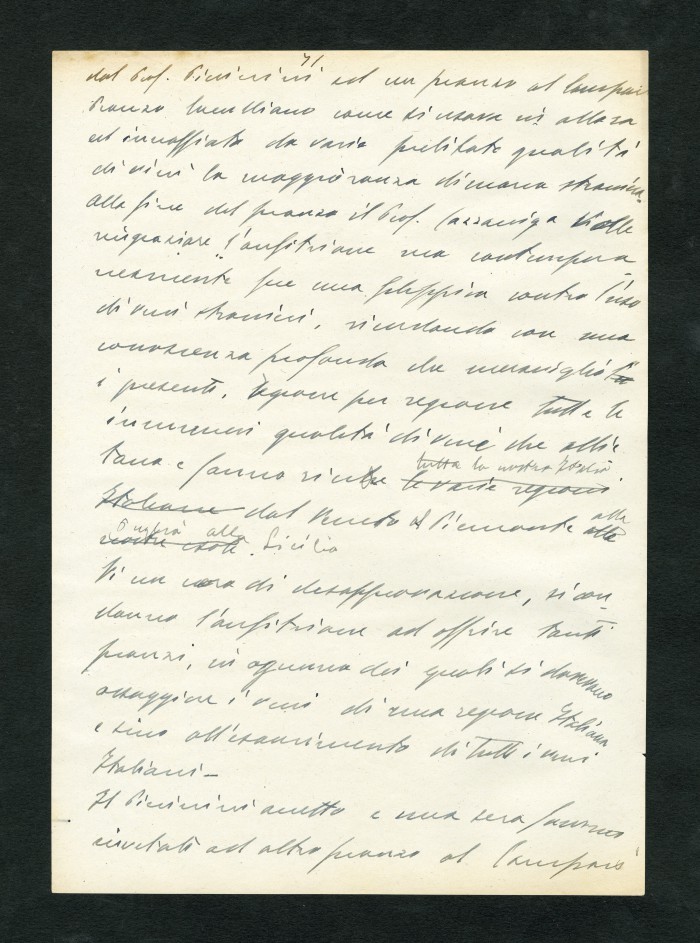 71
dal Prof. Piccinini ad un pranzo al Campari
Pranzo luculliano come si usava in allora
ed innaffiato da varie prelibate qualità
di vini la maggioranza di marca straniera.
Alla fine del pranzo il Prof. Cazzaniga volle
ringraziare l'anfitrione ma contempora-
neamente fece una filippica contro l'uso
di vini stranieri, ricordando con una
conoscenza profonda che meravigliò
i presenti, regione per regione tutte le
innumeri qualità di vini che allie
tano e fanno ridere le varie regioni
tutta la nostra Italia
Italiane dal Veneto al Piemonte alle
alla
nostre isole. Sicilia
alla
Vi un coro di disapprovazione, si con-
danna l'anfitrione ad offrire tanti
pranzi, in ognuno dei quali si dovessero
assaggiare i vini di una regione Italiana
e sino all'esaurimento di tutti i vini
Italiani -
Il Piccinini accettò e una sera fummo
invitati ad altro pranzo al Campari